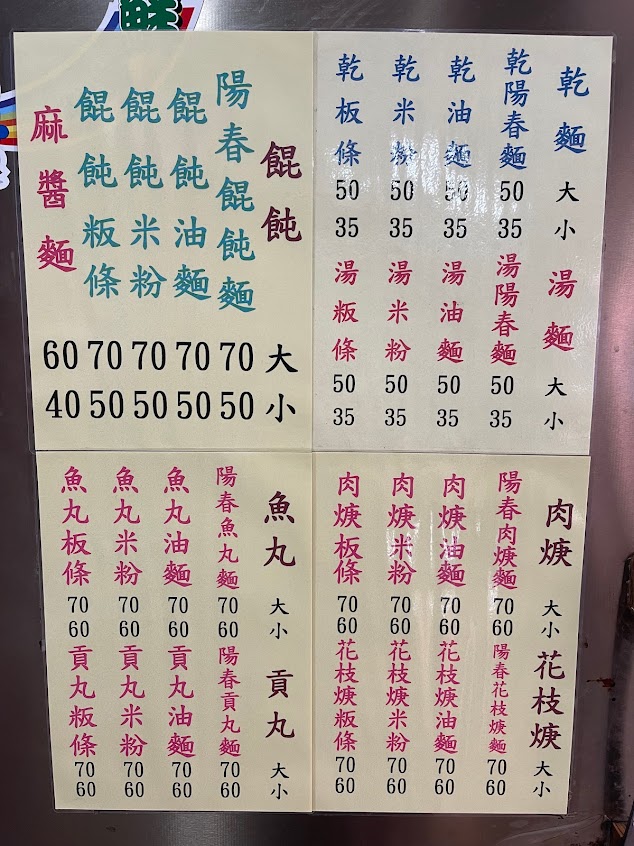 乾麵 大 小
乾陽春麵 50 35
乾油麵 50 35
乾米粉 50 35
乾板條 50 35
湯麵 大 小
湯陽春麵 50 35
湯油麵 50 35
湯米粉 50 35
湯粄條 50 35
餛飩 大 小
陽春餛飩麵 70 50
餛飩油麵 70 50
餛飩米粉 70 50
餛飩粄條 70 50
麻醬麵 60 40
肉焿 大 小
陽春肉焿麵 70 60
肉焿油麵 70 60
肉焿米粉 70 60
肉焿板條 70 60
花枝焿 大 小
陽春花枝焿麵 70 60
花枝焿油麵 70 60
花枝焿米粉 70 60
花枝焿粄條 70 60
魚丸 大 小
陽春魚丸麵 70 60
魚丸油麵 70 60
魚丸米粉 70 60
魚丸板條 70 60
貢丸 大 小
陽春貢丸麵 70 60
貢丸油麵 70 60
貢丸米粉 70 60
貢丸粄條 70 60